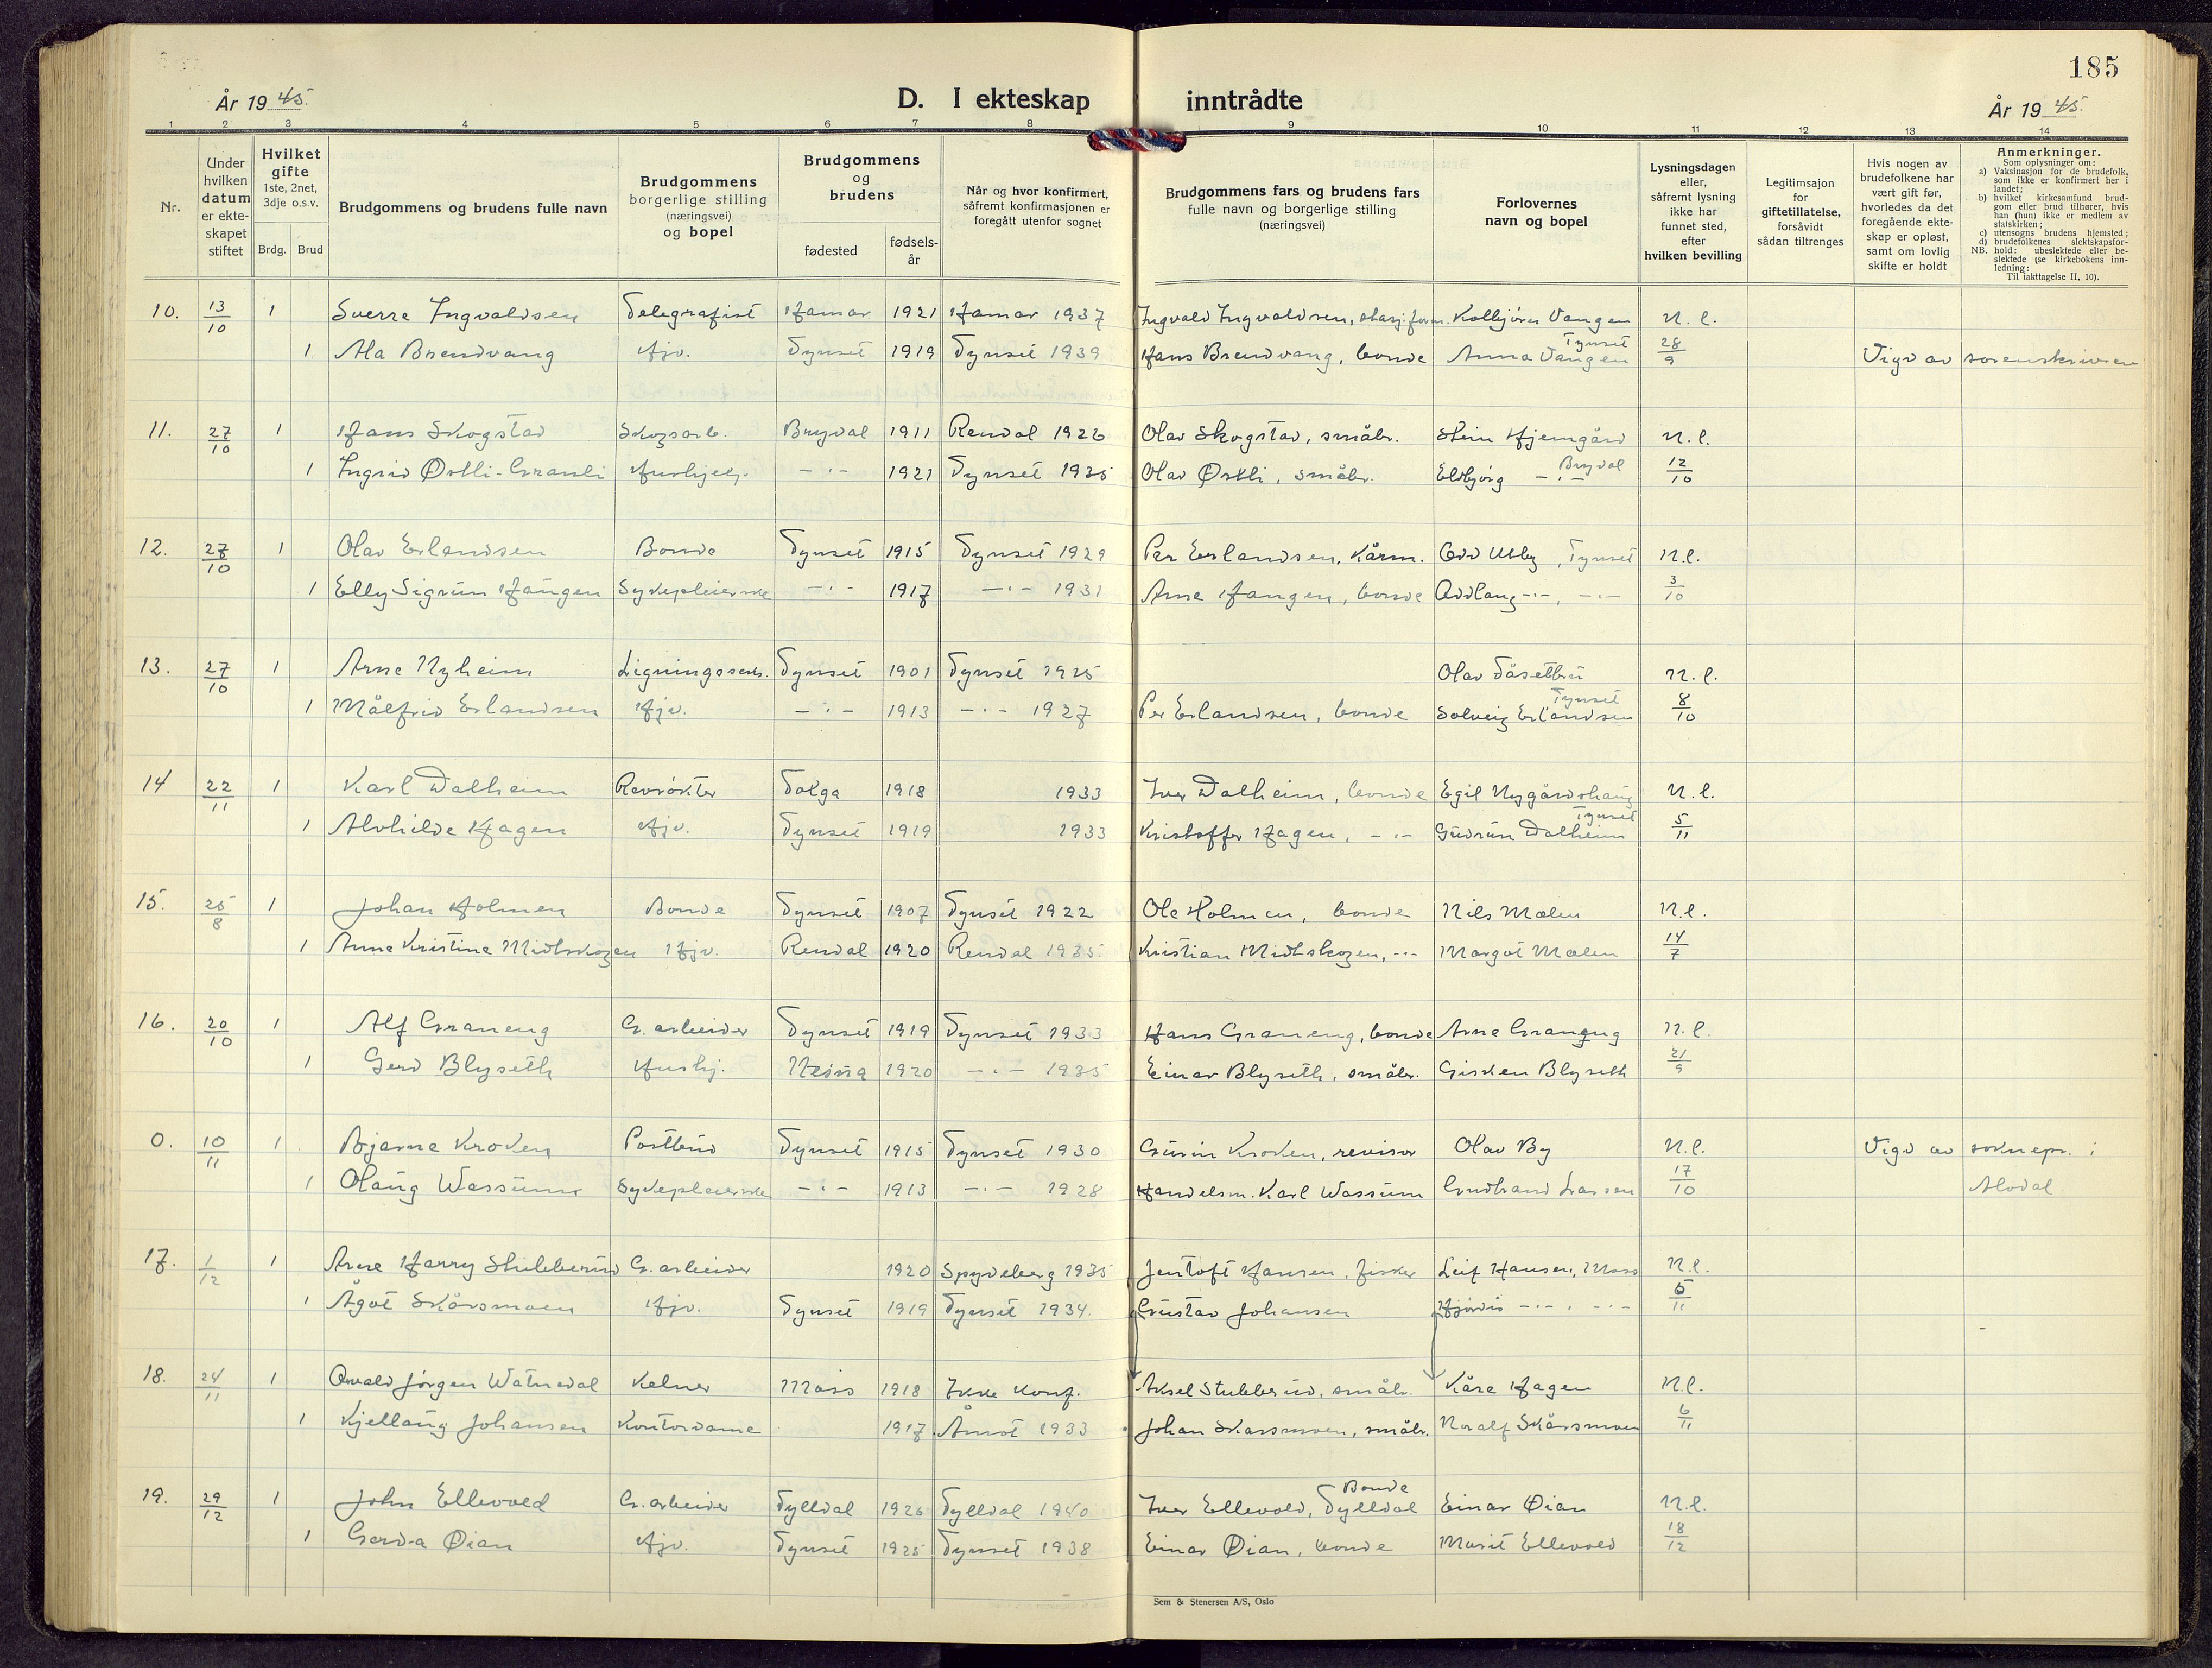 185
År 1945.
D. I ekteskap inntrådte
År 1945.
1 2 3 4 5 6 7 8 9 10 11 12 13 14
Nr.
Under hvilken datum er ekteskapet stiftet
Hvilket gifte 1ste, 2net, 3dje o.s.v.
Brdg. Brud
Brudgommens og brudens fulle navn
Brudgommens borgerlige stilling (næringsvei) og bopel
Brudgommens og brudens
fødested
fødselsår
Når og hvor konfirmert, såfremt konfirmasjonen er foregått utenfor sognet
Brudgommens fars og brudens fars fulle navn og borgerlige stilling (næringsvei)
Forlovernes navn og bopel
Lysningsdagen eller, såfremt lysning ikke har funnet sted, efter hvilken bevilling
Legitimsajon for giftetillatelse, forsåvidt sådan tiltrenges
Hvis nogen av brudefolkene har vært gift før, hvorledes da det foregående ekteskap er opløst, samt om lovlig skifte er holdt
Anmerkninger.
Som oplysninger om:
a) Vaksinasjon for de brudefolk, som ikke er konfirmert her i landet;
b) hvilket kirkesamfund brudgom eller brud tilhører, hvis han (hun) ikke er medlem av statskirken;
c) utensogns brudens hjemsted;
d) brudefolkenes slektskapsforhold: ubeslektede eller beslektede (se kirkebokens innledning:
NB. Til iakttagelse II. 10).
10. 13/10 1 Sverre Ingvaldsen Telegrafist Hamar 1921 Hamar 1937 Ingvald Ingvaldsen, stasj.form. Kolbjørn Vangen N.l.
1 Ala Brendvang Hjv. Tynset 1919 Tynset 1939 Hans Brendvang, bonde Anna Vangen Tynset 28/9 Vigd av sorenskriveren
11. 27/10 1 Hans Skogstad Skogsarb. Brydal 1911 Rendal 1926 Olav Skogstad, småbr. Stein Hjemgård N.l.
1 Ingrid Østli-Granli Hushjelp. -"- 1921 Tynset 1935 Olav Østli, småbr. Eldbjørg -"- Brydal 12/10
12. 27/10 1 Olav Erlandsen Bonde Tynset 1915 Tynset 1929 Per Erlandsen, Kårm. Odd Utby, Tynset N.l.
1 Elly Sigrun Haugen Sykepleierske -"- 1917 -"- 1931 Arne Haugen, bonde Oddlaug -"-, -"- 3/10
13. 27/10 1 Arne Nyheim Ligningssek. Tynset 1901 Tynset 1915 Olav Tåsetbru N.l.
1 Målfrid Erlandsen Hjv. -"- 1913 -"- 1927 Per Erlandsen, bonde Solveig Erlandsen Tynset 8/10
14 22/11 1 Karl Dalheim Revrøkter Tolga 1918 1933 Iver Dalheim, bonde Egil Nygårdshaug N.l.
1 Alvhilde Hagen Hjv. Tynset 1919 1933 Kristoffer Hagen, -"- Gudrun Dalheim Tynset 5/11
15. 25/8 1 Johan Holmen Bonde Tynset 1907 Tynset 1922 Ole Holmen, bonde Nils Mælen N.l.
1 Anne Kristine Midtskogen Hjv. Rendal 1920 Rendal 1935. Kristian Midtskogen, -"- Margot Mælen 14/7
16. 20/10 1 Alf Graneng G.arbeider Tynset 1919 Tynset 1933 Hans Graneng, bonde Arne Graneng N.l.
1 Gerd Blyseth Hushj. 1920 -"- 1935 Einar Blyseth, småbr. Gisken Blyseth 21/9
0. 10/11 1 Bjarne Kroken Postbud Tynset 1915 Tynset 1930 Kroken, revisor Olav By N.l. Vigd av soknepr. i
1 Olaug Wassum Sykepleierske -"- 1913 -"- 1928 Handelsm. Karl Wassum Gudbrand Larsen 17/10 Alvdal
17. 1/12 1 Arne Harry Stubberud G.arbeider 1920 Spydeberg 1935 Jentoft Hansen, fisker Leif Hansen, Moss N.l.
1 Ågot Skårsmoen Hjv. Tynset 1919 Tynset 1934. Gustav Johansen Hjørdis -"-, -"- 5/11
18. 24/11 1 Jørgen Watnedal Kelner Moss 1918 Ikke konf. Aksel Stubberud, småbr. Kåre Hagen N.l.
1 Kjellaug Johansen Kontordame 1917 Åmot 1933 Johan Skarsmoen, småbr. Noralf Skårsmoen 6/11
19. 29/12 1 John Ellevold G.arbeider Tylldal 1926 Tylldal 1940 Iver Ellevold, Tylldal Bonde Einar Øian N.l.
1 Gerda Øian Hjv. Tynset 1925 Tynset 1938 Einar Øian, bonde Marit Ellevold 18/12
Sem & Stenersen A/S, Oslo